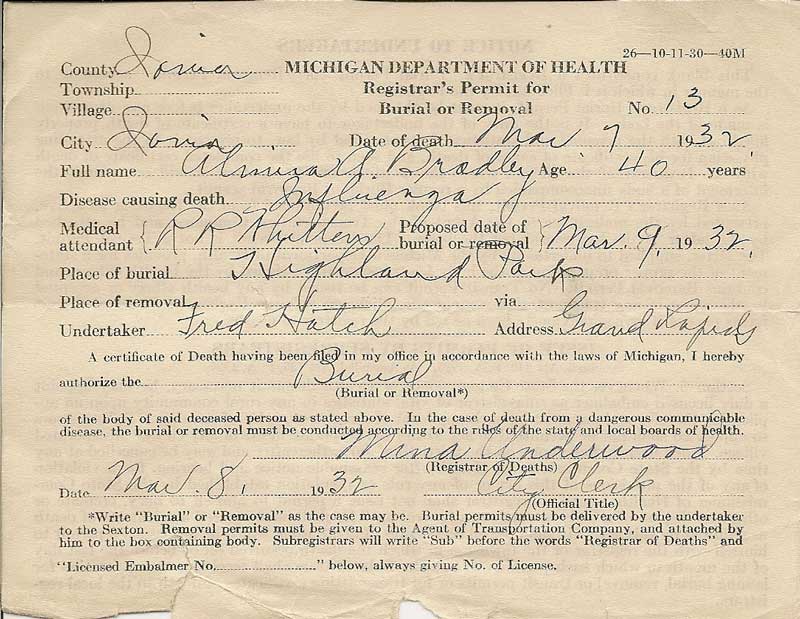 26—10-11-30—40M
County Ionia MICHIGAN DEPARTMENT OF HEALTH
Township Registrar's Permit for
Village Burial or Removal No. 13
City Ionia Date of death Mar 7 1932
Full name Almira A. Bradley Age 40 years
Disease causing death Influenza
Medical attendant { R R Whitten Proposed date of burial or removal } Mar. 9, 1932.
Place of burial Highland Park
Place of removal via
Undertaker Fred Hatch Address Grand Rapids
A certificate of Death having been filed in my office in accordance with the laws of Michigan, I hereby
authorize the Burial
(Burial or Removal*)
of the body of said deceased person as stated above. In the case of death from a dangerous communicable
disease, the burial or removal must be conducted according to the rules of the state and local boards of health.
Mina Underwood
(Registrar of Deaths)
Date Mar. 8, 1932 City Clerk
(Official Title)
*Write "Burial" or "Removal" as the case may be. Burial permits must be delivered by the undertaker
to the Sexton. Removal permits must be given to the Agent of Transportation Company, and attached by
him to the box containing body. Subregistrars will write "Sub" before the words "Registrar of Deaths" and
"Licensed Embalmer No." below, always giving No. of License.